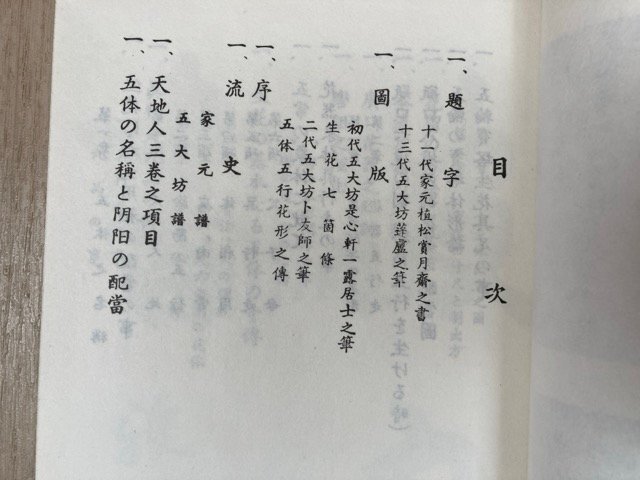 目次
一、題字
十一代家元植松賞月齋之書
十三代五大坊華盧之筆
一、圖版
初代五大坊是心軒一露居士之筆
生花七箇條
二代五大坊卜友師之筆
五体五行花形之傳
一、序
一、流史
家元譜
五大坊譜
一、天地人三巻之項目
一、五体の名稱と阴阳の配當